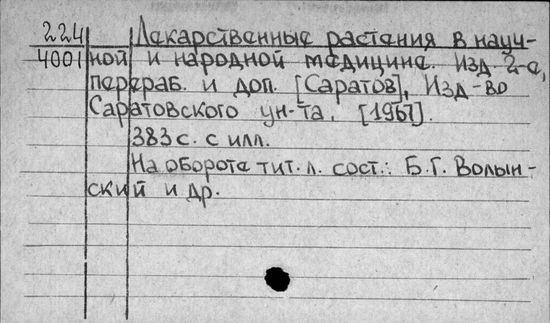 224 Лекарственные растения в науч-
4001 ной и народной медицине. Изд. 2-е,
перераб. и доп. [Саратов], Изд-во
Саратовского ун-та, [1967].
383 с. с илл.
На обороте тит. л. сост.: Б.Г. Волын-
ский и др.